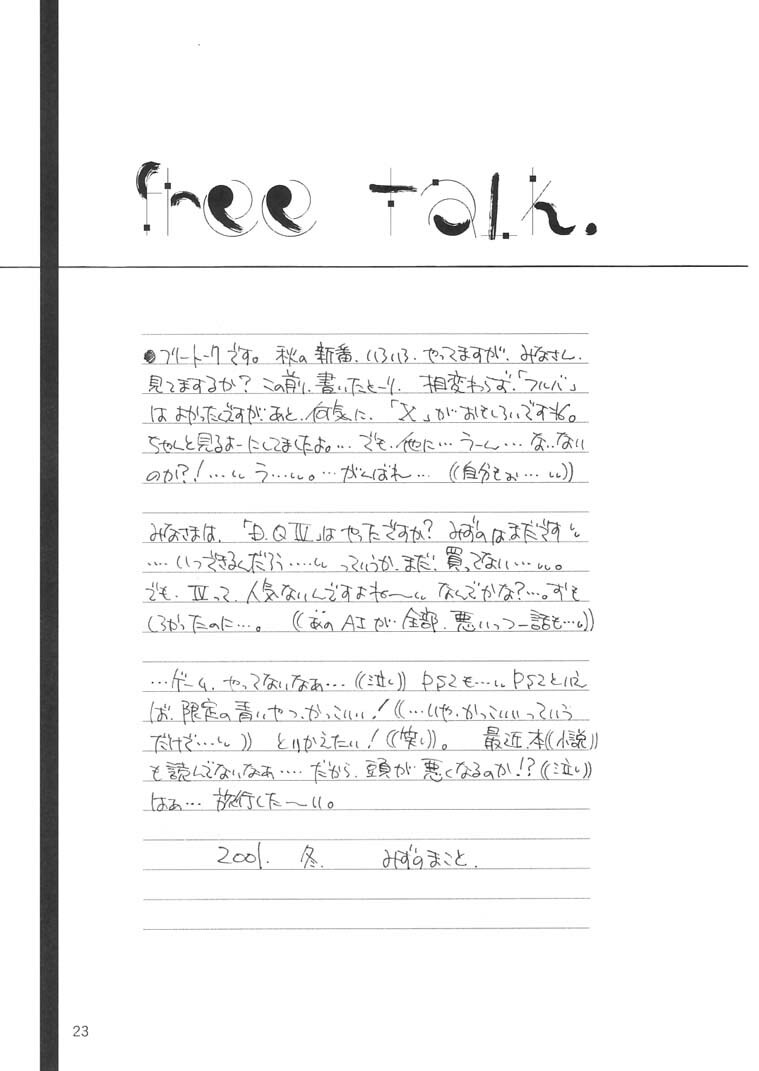 free talk.
●フリートークです。秋の新番、いろいろ、やってますが、みなさん、
見てますか？この前、書いたとーり、相変わらず、「フルバ」
はよかったんですが、あと、何気に、「X」が、おもしろいですね。
ちゃんと見るよーにしてましたよ。… でも、他に… うーん… な、ない
のか?!…ぃぃ う…ぃぃ。… がんばれ… ((自分もぉ…ぃぃ))
みなさまは、「D.Q Ⅳ」はやったですか？みずのはまだですぃぃ
…いつできるんだろう……ぃぃ っていうか、まだ、買ってない…ぃぃ。
でも、Ⅳって、人気ないんですよね〜ぃぃ なんでかな？…。おも
しろかったのに…。((あのAIが…全部、悪いっつー話も…ぃぃ))
…ゲーム、やってないなぁ…((泣ぃ)) PS2も…ぃぃ PS2といえ
ば、限定の青いやつ、かっこいい！((…いや、かっこいいっていう
だけど…ぃぃ)) とりかえたい！((笑ぃ))。最近、本((小説))
も読んでないなぁ…だから、頭が悪くなるのか!?((泣ぃ))
はぁ… 旅行した〜い。
2001. 冬. みずのまこと.
23